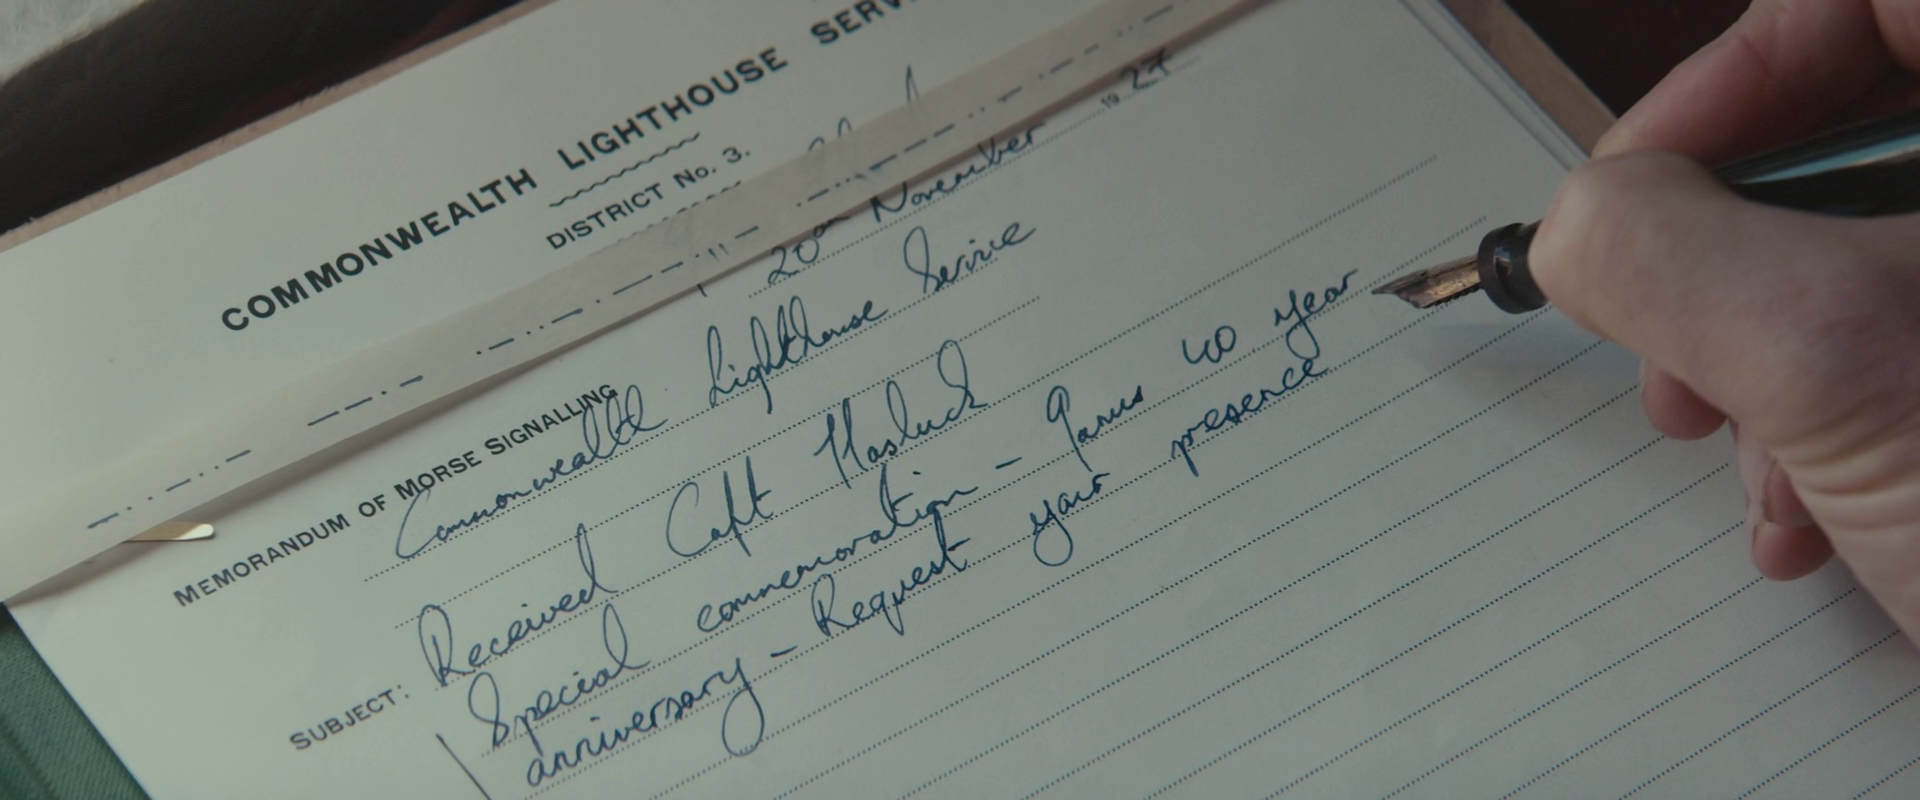 COMMONWEALTH LIGHTHOUSE SERV
DISTRICT No. 3.
20th November 1927
MEMORANDUM OF MORSE SIGNALLING
Commonwealth Lighthouse Service
SUBJECT: Received Capt Hasluck
Special commemoration - Janus 40 year
anniversary - Request your presence